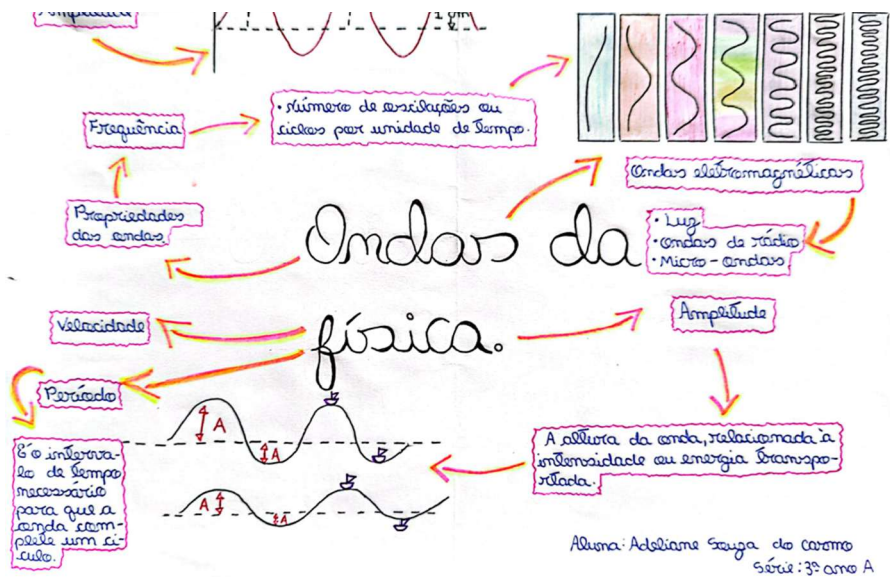 Frequência
• número de oscilações ou
ciclos por unidade de tempo.
Propriedades
das ondas.
Ondas da
física.
Ondas eletromagnéticas
• Luz
• Ondas de rádio
• Micro-ondas
Velocidade
Amplitude
Período
A
A
A
A
É o interva-
lo de tempo
necessário
para que a
onda com-
plete um ci-
culo.
A altura da onda, relacionada à
intensidade ou energia transpo-
rtada.
Aluna: Adeliane Souza do carmo
Série: 3º ano A